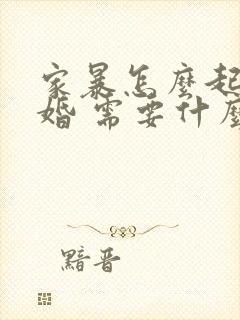 家暴怎麼起
婚 需要什麼
黯晋